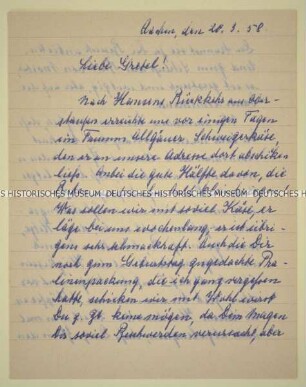 Aachen, den 28.3.58
Liebe Gretel!
Nach Hannens Rückkehr aus Ober-
staufen erreichte uns vor einigen Tagen
ein Allgäuer Schweizerkäse,
den er an unsere Adresse dort abschicken
ließ. Anbei die gute Hälfte davon, die
DEUTSCHES HISTORISCHES MUSEUM DEUTSCHES HISTORISCHES MUSEUM
Was sollen wir mit soviel Käse, er
läge bei uns wochenlang, er ist übri-
gens sehr schmackhaft. Auch die Dir
mal zum Geburtstag gedachte Pra-
linenpackung, die ich ganz vergessen
hatte, schicken wir mit. Wohl wirst
Du z. Zt. keine mögen, da Dein Magen
Dir soviel Beschwerden verursacht, aber